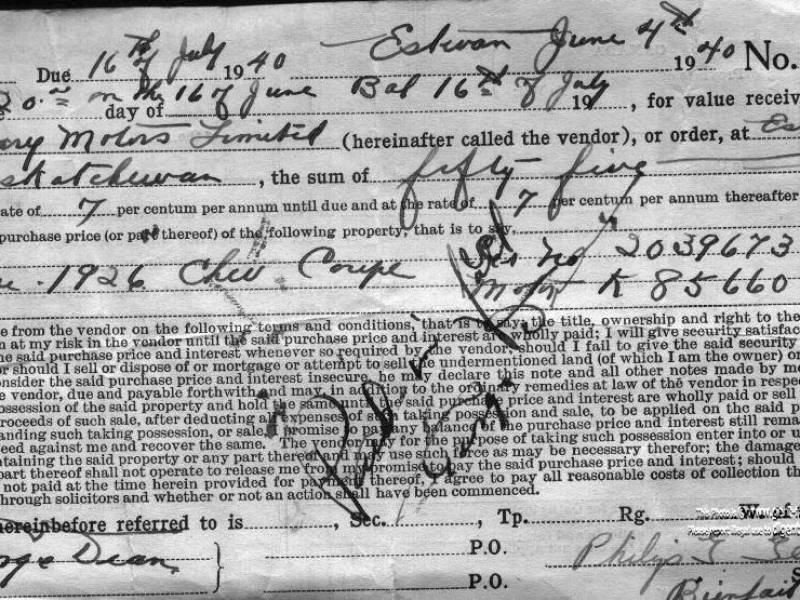 Due 16th of July 1940 Estevan June 4th 1940 No.
20.00 on the 16 of June Bal 16th of July
day of 19 , for value receiv
ary Motors Limited (hereinafter called the vendor), or order, at Es
skatchewan , the sum of fifty five
ate of 7 per centum per annum until due and at the rate of 7 per centum per annum thereafter
purchase price (or part thereof) of the following property, that is to say,
1926 Chev. Coupe Ser No 2039673
Motor K 85660
e from the vendor on the following terms and conditions, that is to say: the title, ownership and right to the
n at my risk in the vendor until the said purchase price and interest are wholly paid; I will give security satisfac
he said purchase price and interest whenever so required by the vendor, should I fail to give the said security
or should I sell or dispose of or mortgage or attempt to sell the undermentioned land (of which I am the owner) or
onsider the said purchase price and interest insecure, he may declare this note and all other notes made by me
e vendor, due and payable forthwith and may in addition to the ordinary remedies at law of the vendor in respec
ossession of the said property and hold the same until the said purchase price and interest are wholly paid or sell
roceeds of such sale, after deducting all expenses of such taking possession and sale, to be applied on the said p
anding such taking possession, or sale, I promise to pay any balance of the purchase price and interest still rema
eed against me and recover the same. The vendor may for the purpose of taking such possession enter into or u
taining the said property or any part thereof and may use such force as may be necessary therefor; the damage
part thereof shall not operate to release me from my promise to pay the said purchase price and interest; should
not paid at the time herein provided for payment thereof, I agree to pay all reasonable costs of collection th
hrough solicitors and whether or not an action shall have been commenced.
hereinbefore referred to is , Sec. , Tp. Rg. W. of
rge Dean P.O. Philip
P.O. Bienfait